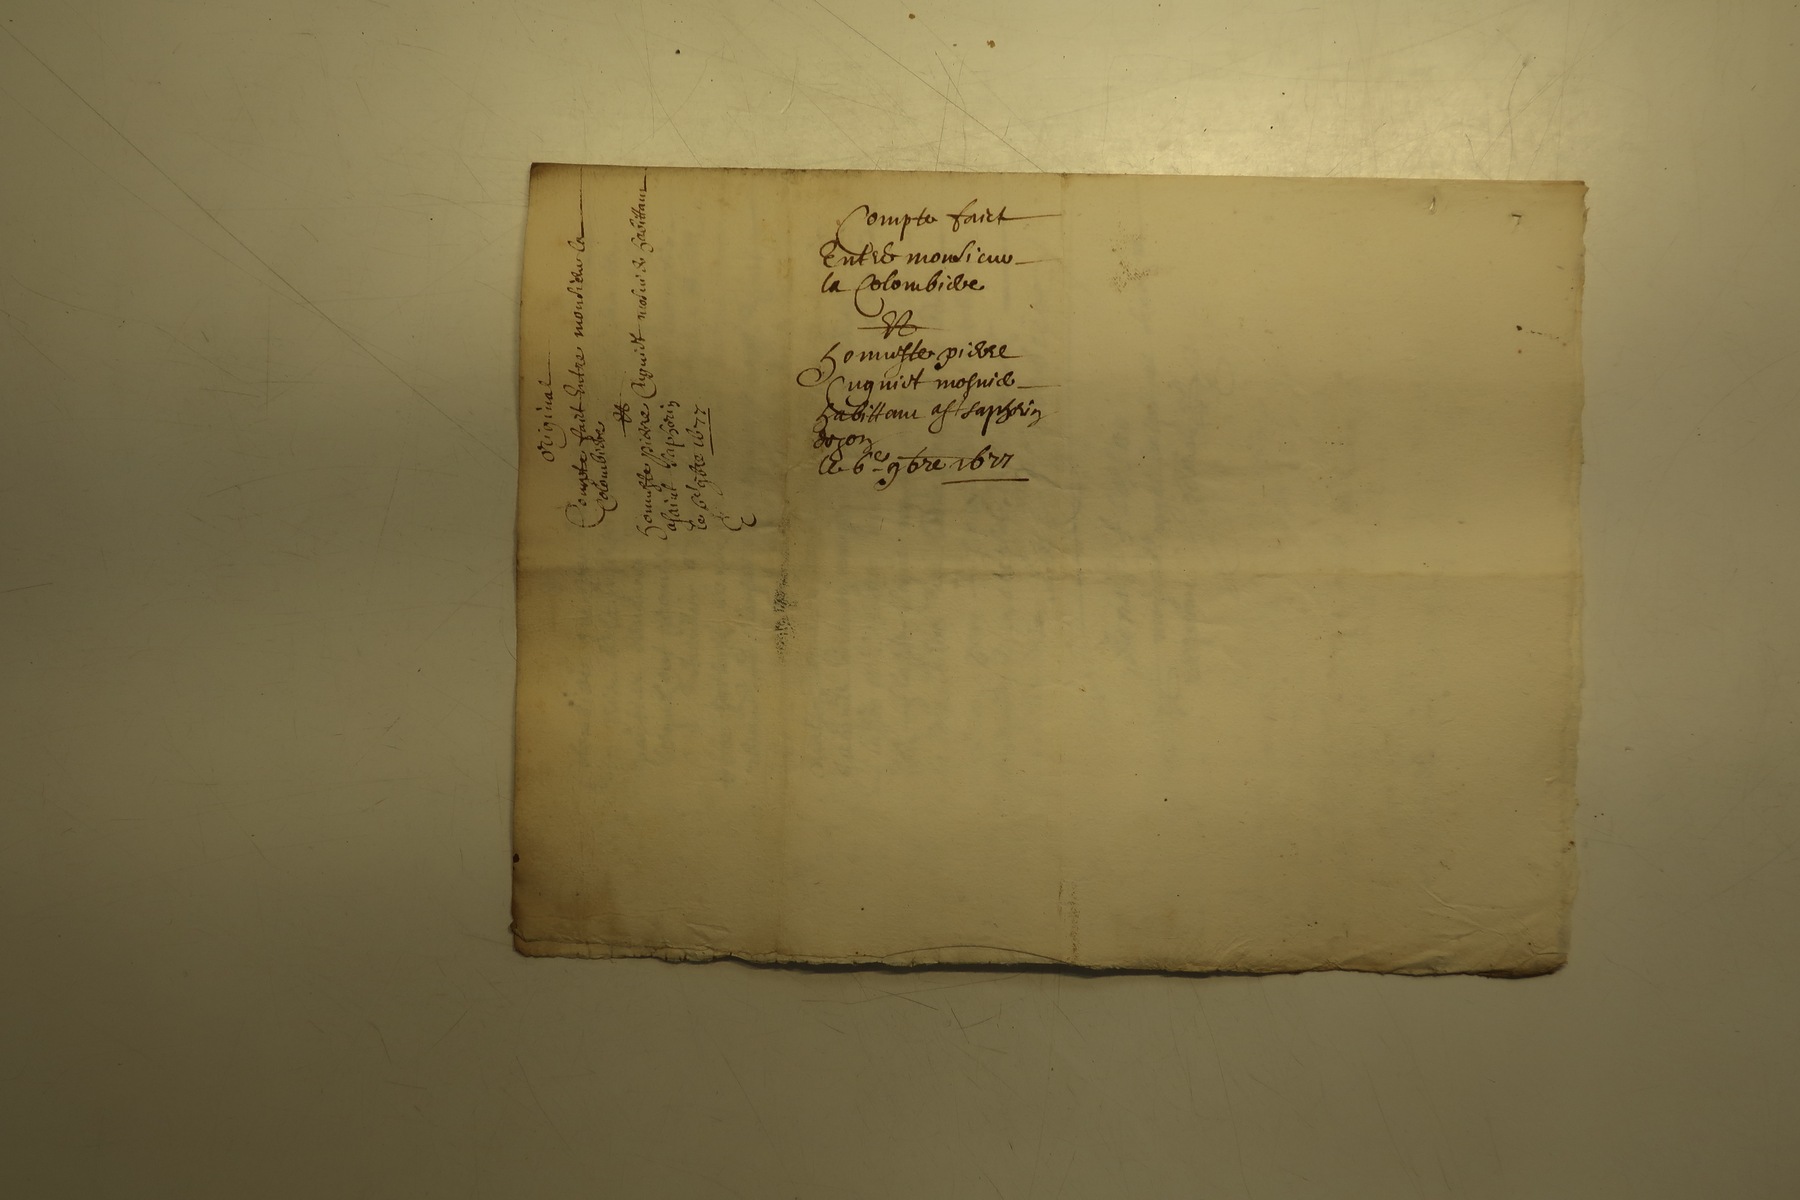 Original
Compte faict Entre monsieur la
Colombiere
Et
honneste pierre Cuguict mosnier habittant
asaint Saphorin
le 6e 9bre 1677
Compte faict
Entre monsieur
la Colombiere
Et
honneste pierre
Cuguict mosnier
habittant a St saphorin
le 6e 9bre 1677